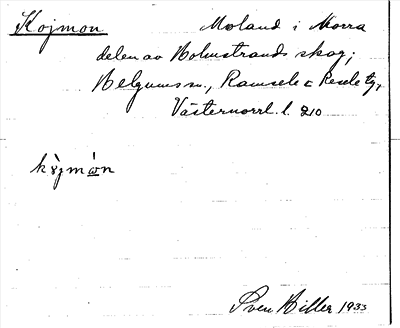 Kojmon Moland i Norra
delen av Holmstrands skog;
Helgums sn., Ramsele & Resele tg,
Västernorrl. l. 210
kòjmón
Sven Hiller 1933